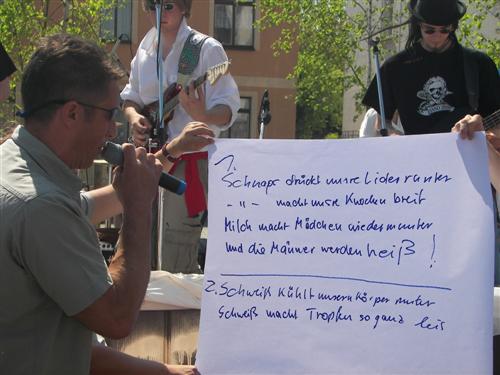 1. Schnaps drückt unsre Lider runter
-"- macht unsre Knochen breit
Milch macht Mädchen wieder munter
und die Männer werden heiß!
2. Schweiß kühlt unsern Körper runter
Schweiß macht Tropfen so ganz leis